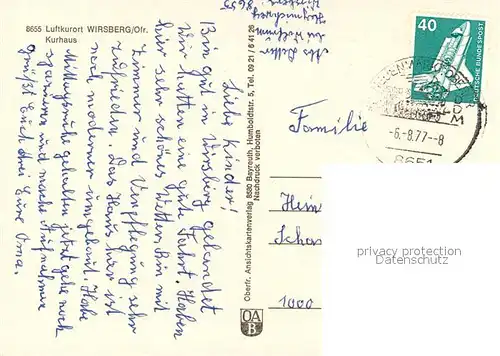 8655 Luftkurort WIRSBERG/Ofr.
Kurhaus
Liebe Kinder!
Bin gut in Wirsberg gelandet
Wir hatten eine gute Fahrt. Haben
sehr schönes Wetter. Bin mit
Zimmer und Verpflegung sehr
zufrieden. Das Haus hier ist
noch moderner umgebaut. Habe
Mittagsruhe gehalten jetzt geh noch
spazieren und mache Aufnahmen
grüßt Euch drei Eure Oma.
Oberfr. Ansichtskartenverlag 8580 Bayreuth, Humboldtstr. 5, Tel. 09 21 / 6 41 26
Nachdruck verboten
OA
B
8655
40
DEUTSCHE BUNDESPOST
-6.-8.77--8
8651
Familie
Hein
Scha
1000
privacy protection
Datenschutz